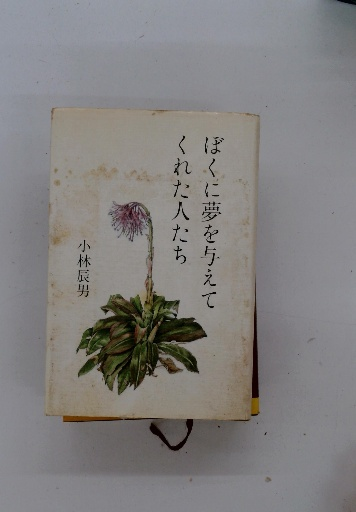 ぼくに夢を与えて
くれた人たち
小林辰男